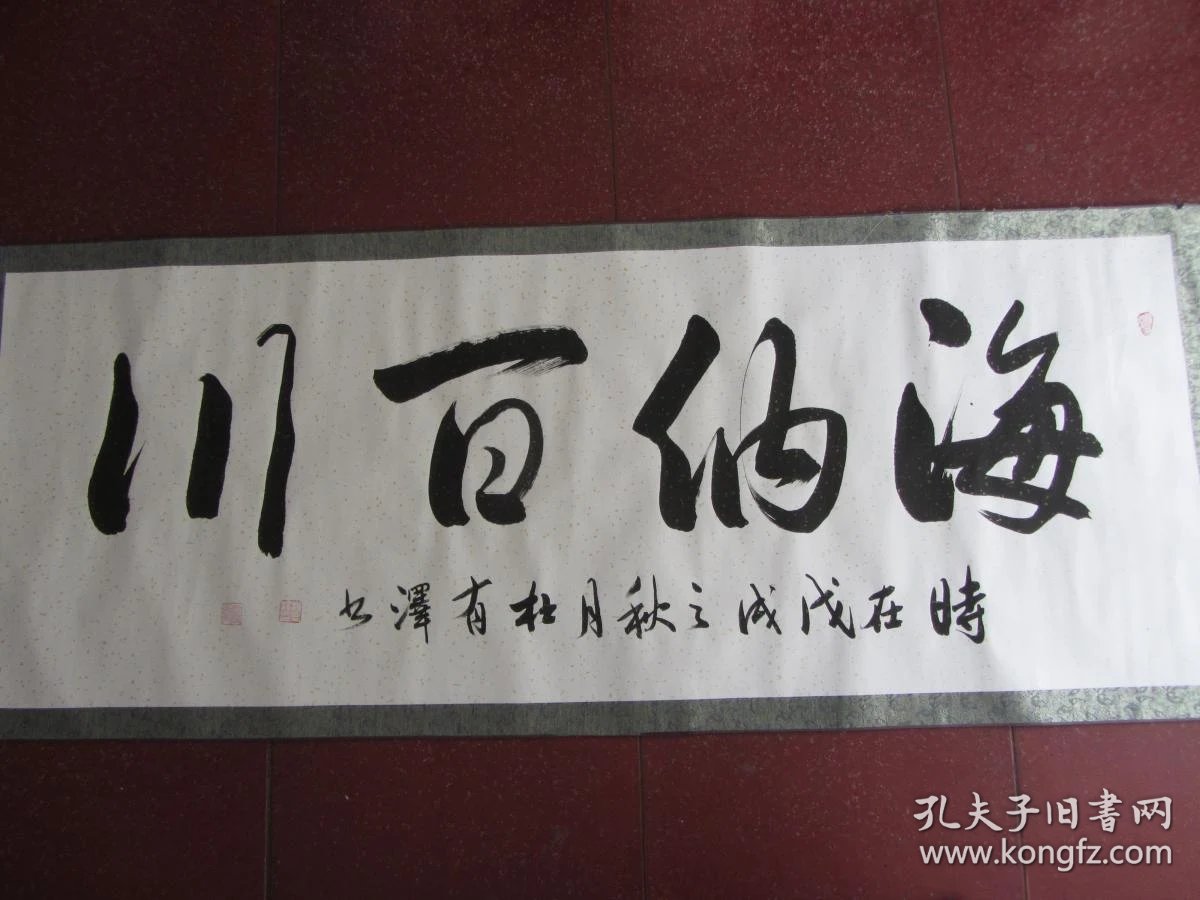 海纳百川
時在戊戌之秋月杜有澤书
孔夫子旧書网
www.kongfz.com